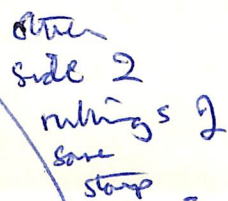 other
side 2
rubbings 2
same
stamp